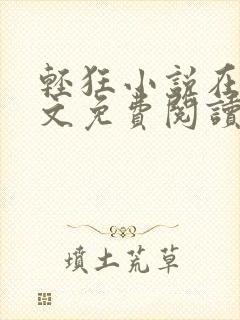 輕狂小說在
文免費閱讀
墳土荒草